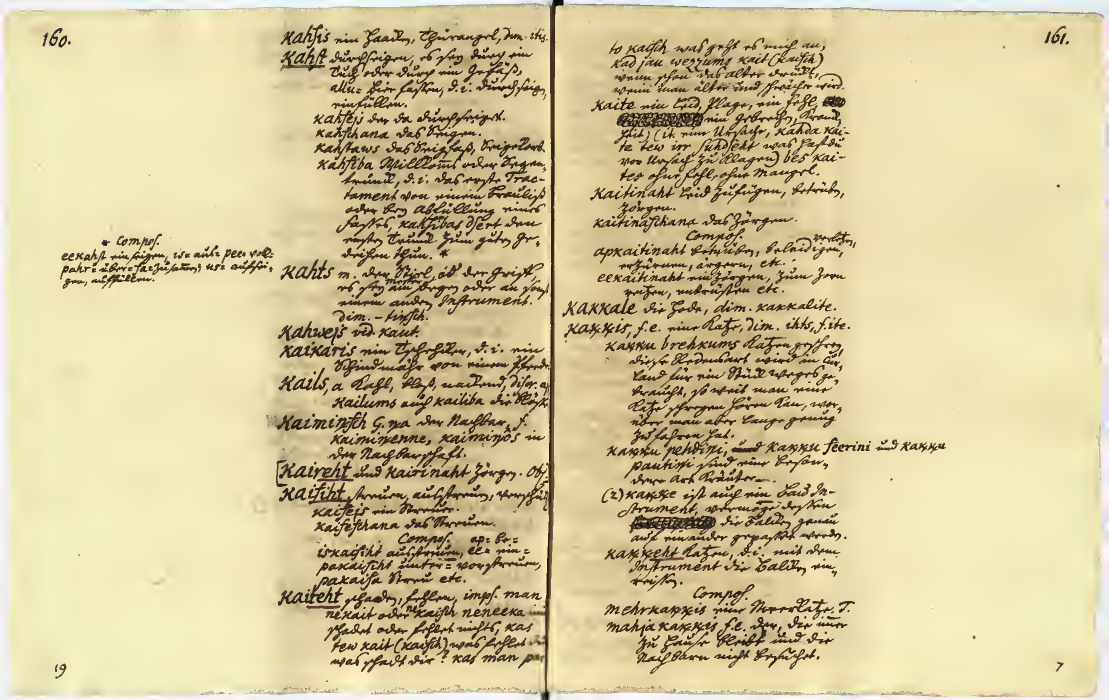 160.
Kahsis ein Haaken, Thürangel, dim. itis.
Kahst durchseigen, es sey durch ein
Tuch oder durch ein Gefäß,
allu= Bier fassen, d. i. durchseigen,
einfüllen.
kahsejs der da durchseiget.
kahschana das Seigen.
kahstaws das Seigfaß, Seigekorb.
kahsiba Willkoms oder Segen=
trunk, d. i. das erste Trac=
tament von einem
oder bey abfüllung eines
Fasses, kahsibas dsert den
ersten Trunk zum guten Ge=
deihen thun. *
* Compos.
eekahst einseigen, is= aus= pee= voll=
pahr= über= sa= zusamen, us= aufsei=
gen, auffüllen.
Kahts m. der Stiel, als der Geigt,
es sey am Degen oder an sonst
einem andern Instrument.
dim. - tinsch.
Kahwejs vid. kaut.
Kaikaris ein d. i. ein
Schindmähr von einem Pferde.
Kails, a Kahl, bloß, nackend,
kailums auch kailiba die Blöße
Kaiminsch G. ņa der Nachbar, f.
kaiminenne, kaimiņôs in
der Nachbarschaft.
Kaireht und kairinaht Zörgen.
Kaisiht streuen, ausstreuen,
kaisejs ein Streuer.
kaiseschana das Streuen.
Compos. ap= be=
iskaisiht ausstreuen, ee= ein=
pakaisiht unter= vorstreuen,
pakaisa Streu etc.
Kaiteht schaden, fehlen, imps. man
nekait oder nekaisch neneeka
schadet oder fehlet nichts, kas
tew kait (kaisch) was fehlet
was schadt dir? kas man par
19
161.
to kaisch was geht es mich an,
kad jau wezzums kait (kaisch)
wenn schon das alter drückt,
wenn man älter und schwächer wird.
Kaite ein Leid, Plage, ein Fehl,
ein Gebrechen, Krank=
heit) (it. eine Ursache, kahda kai=
te tew irr suhdseht was hast du
vor Ursach zu klagen) bes kai=
tes ohne Fehl, ohne Mangel.
Kaitinaht Leid zufügen, betrüben,
Zörgen.
kaitinaschana das Zörgen.
Compos.
apkaitinaht betrüben, beleidigen,
erzürnen, ärgern, etc.
eekaitinaht einzörgen, zum Zorn
reitzen, entrüsten etc.
Kakkale die Hode, dim. kakkalite.
Kaķķis, f. e. eine Katze, dim. ihts, f. ite.
kaķķu brehkums Katzengeschrey,
diese Redensart wird in Cur=
land für ein Stück weges ge=
braucht, so weit man eine
Katze schreyen hören kan, wor=
über man aber lange genug
zu fahren hat.
kaķķu pehdini, und kaķķu seerini und kaķķu
pautiņi sind eine beson=
dere Art Kräuter.
(2) kaķķe ist auch ein Bau In=
strument, vermöge dessen
die Balken genau
auf einander gepasset werden.
kaķķeht Katzen, d. i. mit dem
Instrument die Balken ein=
reissen.
Compos.
mehrkaķķis eine Meerkatze. T.
mahjakaķķis f. e. der, die imer
zu Hause bleibt und die
Nachbarn nicht besuchet.
7